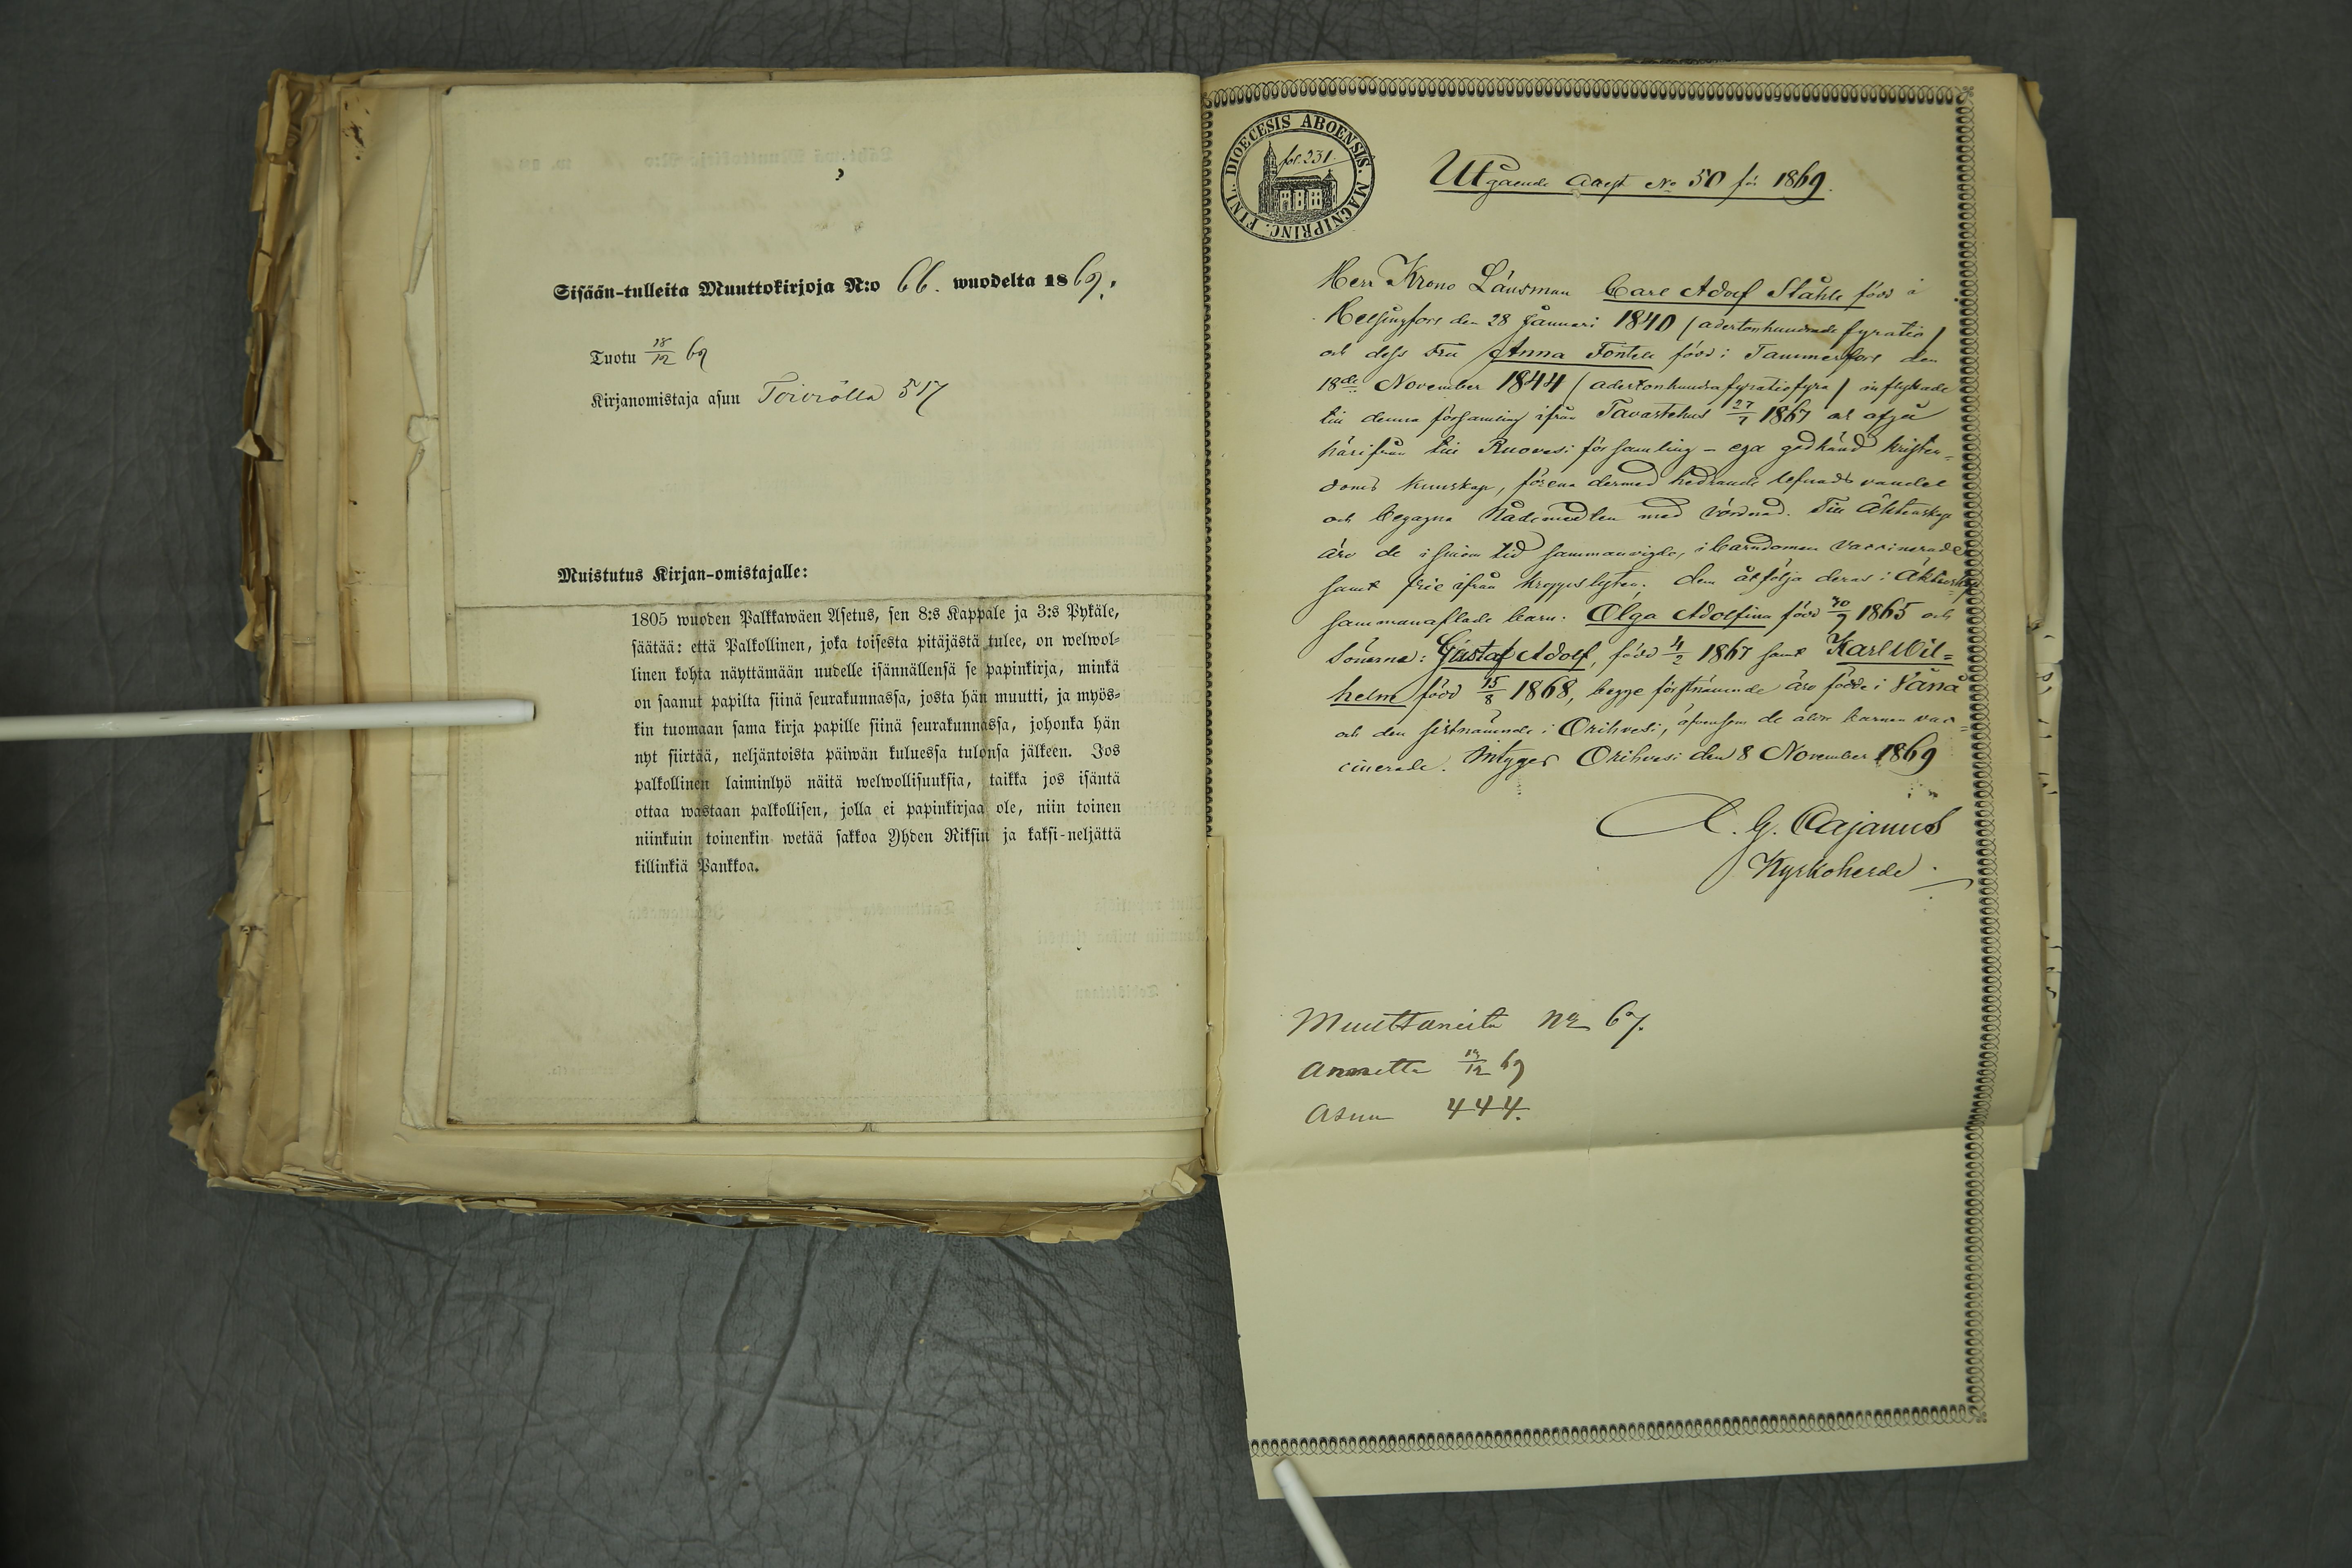 Sisään-tulleita Muuttokirjoja N:o 66. wuodelta 1869.
Tuotu 18/12 69
Kirjanomistaja asuu Toivìolla 517
Muistutus Kirjan-omistajalle:
1805 wuoden Palkkawäen Asetus, sen 8:s Kappale ja 3:s Pykäle,
säätää: että Palkollinen, joka toisesta pitäjästä tulee, on welwol-
linen kohta näyttämään uudelle isännällensä se papinkirja, minkä
on saanut papilta siinä seurakunnassa, josta hän muutti, ja myös-
kin tuomaan sama kirja papille siinä seurakunnassa, johonka hän
nyt siirtää, neljäntoista päiwän kuluessa tulonsa jälkeen. Jos
palkollinen laiminlyö näitä welwollisuuksia, taikka jos isäntä
ottaa wastaan palkollisen, jolla ei papinkirjaa ole, niin toinen
niinkuin toinenkin wetää sakkoa Yhden Riksin ja kaksi-neljättä
killinkiä Pankkoa.
FINL. DIOECESIS ABOENSIS. MAGNIPRINC.
fol. 231.
Utgående attest No 50 för 1869.
Herr Krono Länsman Carl Adolf Ståhle född i
Helsingfors den 28 Januari 1840 (adertonhundrade fyratio)
och dess Fru Anna Fontell född i Tammerfors den
18de November 1844 (adertonhundrafyratiofyra) inflyttade
till denna församling ifrån Tavastehus 27/7 1867 och afgå
härifrån till Ruovesi församling - ega godkänd kristen-
doms kunskap, förena dermed hedrande lefnads vandel
och begagna Nådemedlen med vördnad. Till Äktenskap
äro de i sinom tid sammanvigde, i barndomen vaccinerade
samt frie ifrån kroppslyten; dem åtfölja deras i Äktenskap
sammanaflade barn: Olga Adolfina född 30/9 1865 och
Sönerna: Gustaf Adolf, född 4/2 1867 samt Karl Wil-
helm född 15/8 1868, begge förstnämnde äro födde i Vånå
och den sistnämnde i Orihvesi, äfvensom de äldre barnen vac-
cinerade. Intygar Orihvesi den 8 November 1869
C. G. Cajanus
Kyrkoherde.
Muuttaneita No 67.
Annettu 19/12 69
Asuu 444.